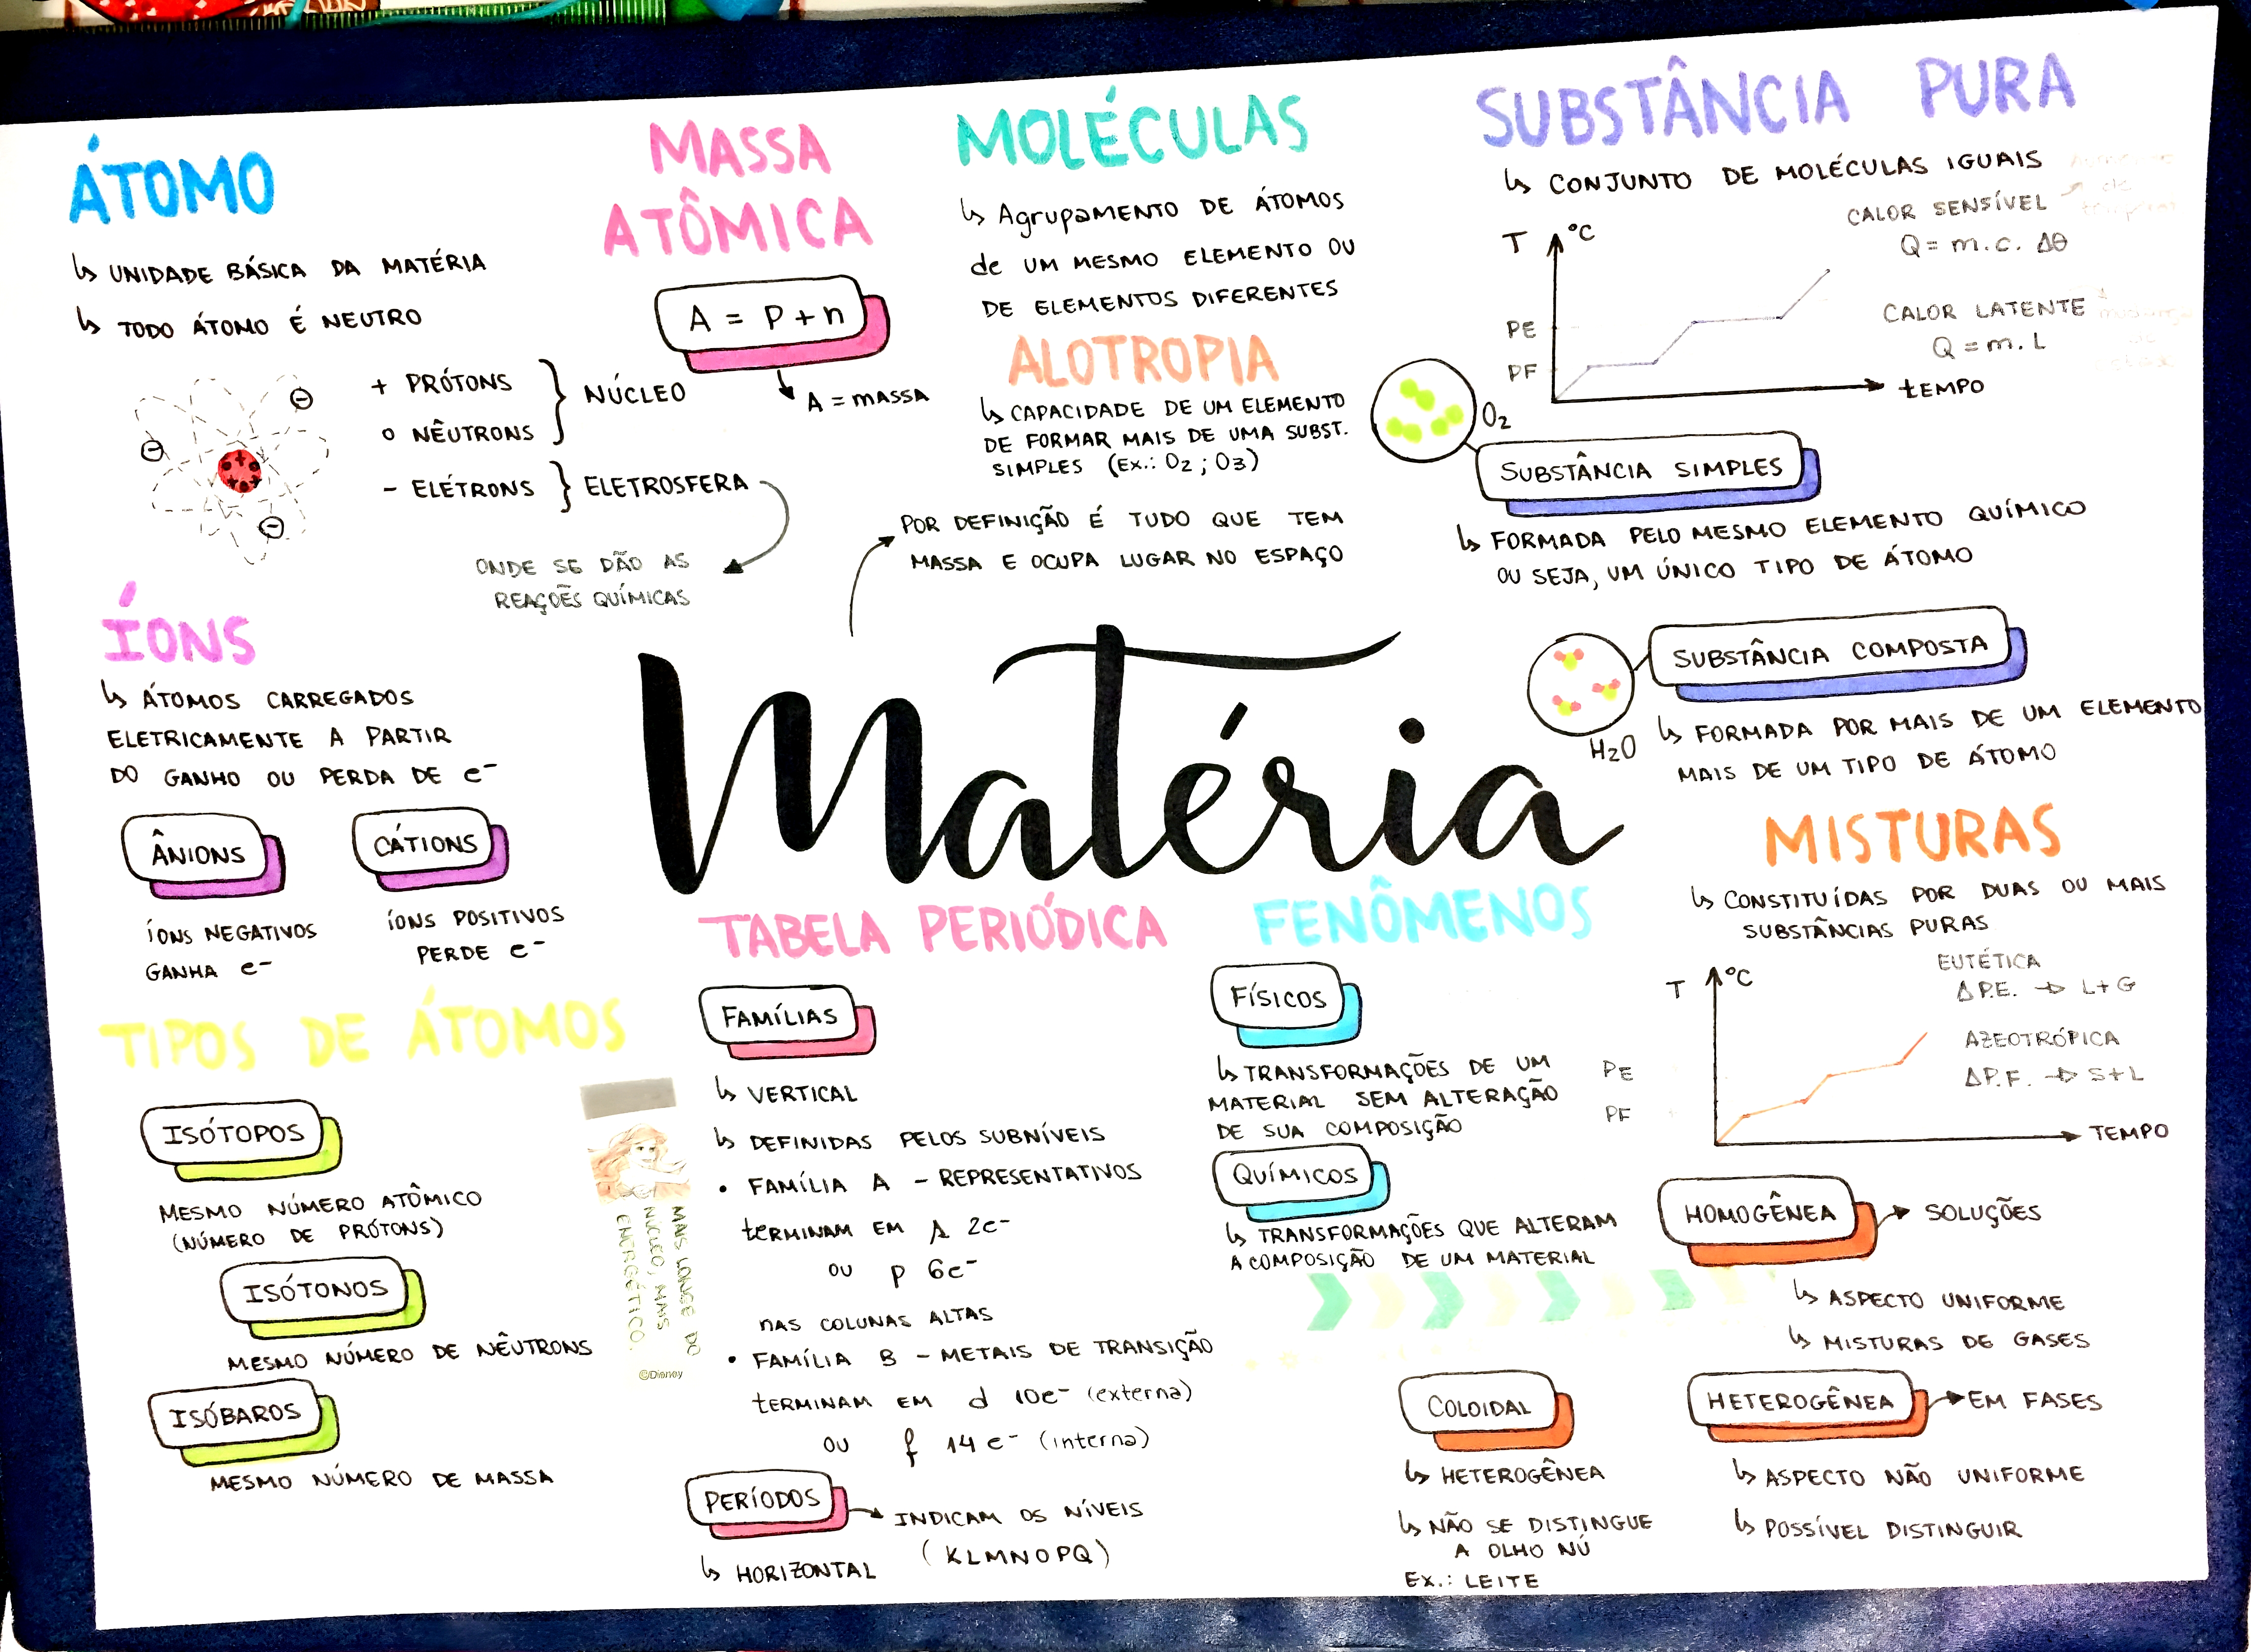 ÁTOMO
↳ UNIDADE BÁSICA DA MATÉRIA
↳ TODO ÁTOMO É NEUTRO
+ PRÓTONS
O NÊUTRONS
NÚCLEO
- ELÉTRONS
ELETROSFERA
ONDE SE DÃO AS
REAÇÕES QUÍMICAS
MASSA
ATÔMICA
A = P + n
A = MASSA
MOLÉCULAS
↳ AgrupaMENTO DE ÁTOMOS
de UM MESMO ELEMENTO OU
DE ELEMENTOS DIFERENTES
ALOTROPIA
↳ CAPACIDADE DE UM ELEMENTO
DE FORMAR MAIS DE UMA SUBST.
SIMPLES (EX.: O2 ; O3)
POR DEFINIÇÃO É TUDO QUE TEM
MASSA E OCUPA LUGAR NO ESPAÇO
Matéria
SUBSTÂNCIA PURA
↳ CONJUNTO DE MOLÉCULAS IGUAIS
CALOR SENSÍVEL
Q = m.c.Δθ
CALOR LATENTE
Q = m.L
T °C
PE
PF
tEMPO
O2
SUBSTÂNCIA SIMPLES
↳ FORMADA PELO MESMO ELEMENTO QUÍMICO
OU SEJA, UM ÚNICO TIPO DE ÁTOMO
SUBSTÂNCIA COMPOSTA
H2O
↳ FORMADA POR MAIS DE UM ELEMENTO
MAIS DE UM TIPO DE ÁTOMO
ÍONS
↳ ÁTOMOS CARREGADOS
ELETRICAMENTE A PARTIR
DO GANHO OU PERDA DE e-
ÂNIONS
ÍONS NEGATIVOS
GANHA e-
CÁTIONS
ÍONS POSITIVOS
PERDE e-
TIPOS DE ÁTOMOS
ISÓTOPOS
MESMO NÚMERO ATÔMICO
(NÚMERO DE PRÓTONS)
ISÓTONOS
MESMO NÚMERO DE NÊUTRONS
ISÓBAROS
MESMO NÚMERO DE MASSA
MAIS LONGE DO
NÚCLEO, MAIS
ENERGÉTICO.
©Disney
TABELA PERIÓDICA
FAMÍLIAS
↳ VERTICAL
↳ DEFINIDAS PELOS SUBNÍVEIS
• FAMÍLIA A - REPRESENTATIVOS
tERMINAM EM s 2e-
OU p 6e-
NAS COLUNAS ALTAS
• FAMÍLIA B - METAIS DE TRANSIÇÃO
tERMINAM EM d 10e- (externa)
OU f 14e- (interna)
PERÍODOS
INDICAM OS NÍVEIS
(KLMNOPQ)
↳ HORIZONTAL
FENÔMENOS
FÍSICOS
↳ TRANSFORMAÇÕES DE UM
MATERIAL SEM ALTERAÇÃO
DE SUA COMPOSIÇÃO
QUÍMICOS
↳ TRANSFORMAÇÕES QUE ALTERAM
A COMPOSIÇÃO DE UM MATERIAL
MISTURAS
↳ CONSTITUÍDAS POR DUAS OU MAIS
SUBSTÂNCIAS PURAS
T °C
EUTÉTICA
Δ P.E. → L+G
AZEOTRÓPICA
ΔP.F. → S+L
PE
PF
TEMPO
HOMOGÊNEA
SOLUÇÕES
↳ ASPECTO UNIFORME
↳ MISTURAS DE GASES
COLOIDAL
↳ HETEROGÊNEA
↳ NÃO SE DISTINGUE
A OLHO NÚ
EX.: LEITE
HETEROGÊNEA
EM FASES
↳ ASPECTO NÃO UNIFORME
↳ POSSÍVEL DISTINGUIR